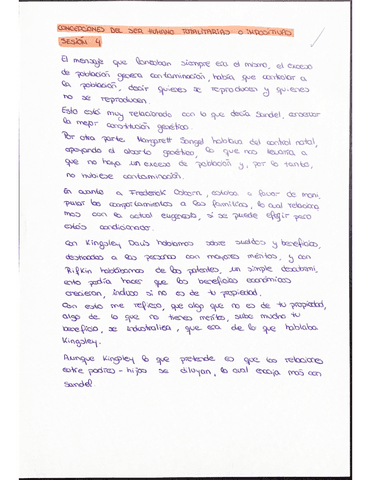 CONCEPCIONES DEL SER HUMANO TOTALITARIAS O IMPOSITIVAS
SESIÓN 4
El mensaje que lanzaban siempre era el mismo, el exceso
de población genera contaminación, había que controlar a
la población, decir quienes se reproducen y quienes
no se reproducen.
Esto está muy relacionado con lo que decía Sandel,
la mejor constitución genética.
Por otra parte Margarett Sanger hablaba del control natal,
apoyando el aborto genético, lo que nos llevaría a
que no haya un exceso de población y, por lo tanto,
no hubiese contaminación.
En cuanto a Frederick Osborn, estaba a favor de mani
pular los comportamientos a las familias, lo cual relaciona
mos con la actual eugenesia, si se puede elegir pero
estás condicionado.
Con Kingsley Davis hablamos sobre sueldos y beneficios,
destinados a las personas con mayores méritos, y con
Rifkin hablábamos de las patentes, un simple
esto podía hacer que los beneficios económicos
crecieran, incluso si no es de tu propiedad.
Con esto me refiero, que algo que no es de tu propiedad,
algo de lo que no tienes mérito, suba mucho tu
beneficio, se industraliza, que era de lo que hablaba
Kingsley.
Aunque Kingsley lo que pretende es que las relaciones
entre padres-hijos se diluyan, lo cual encaja más con
Sandel.